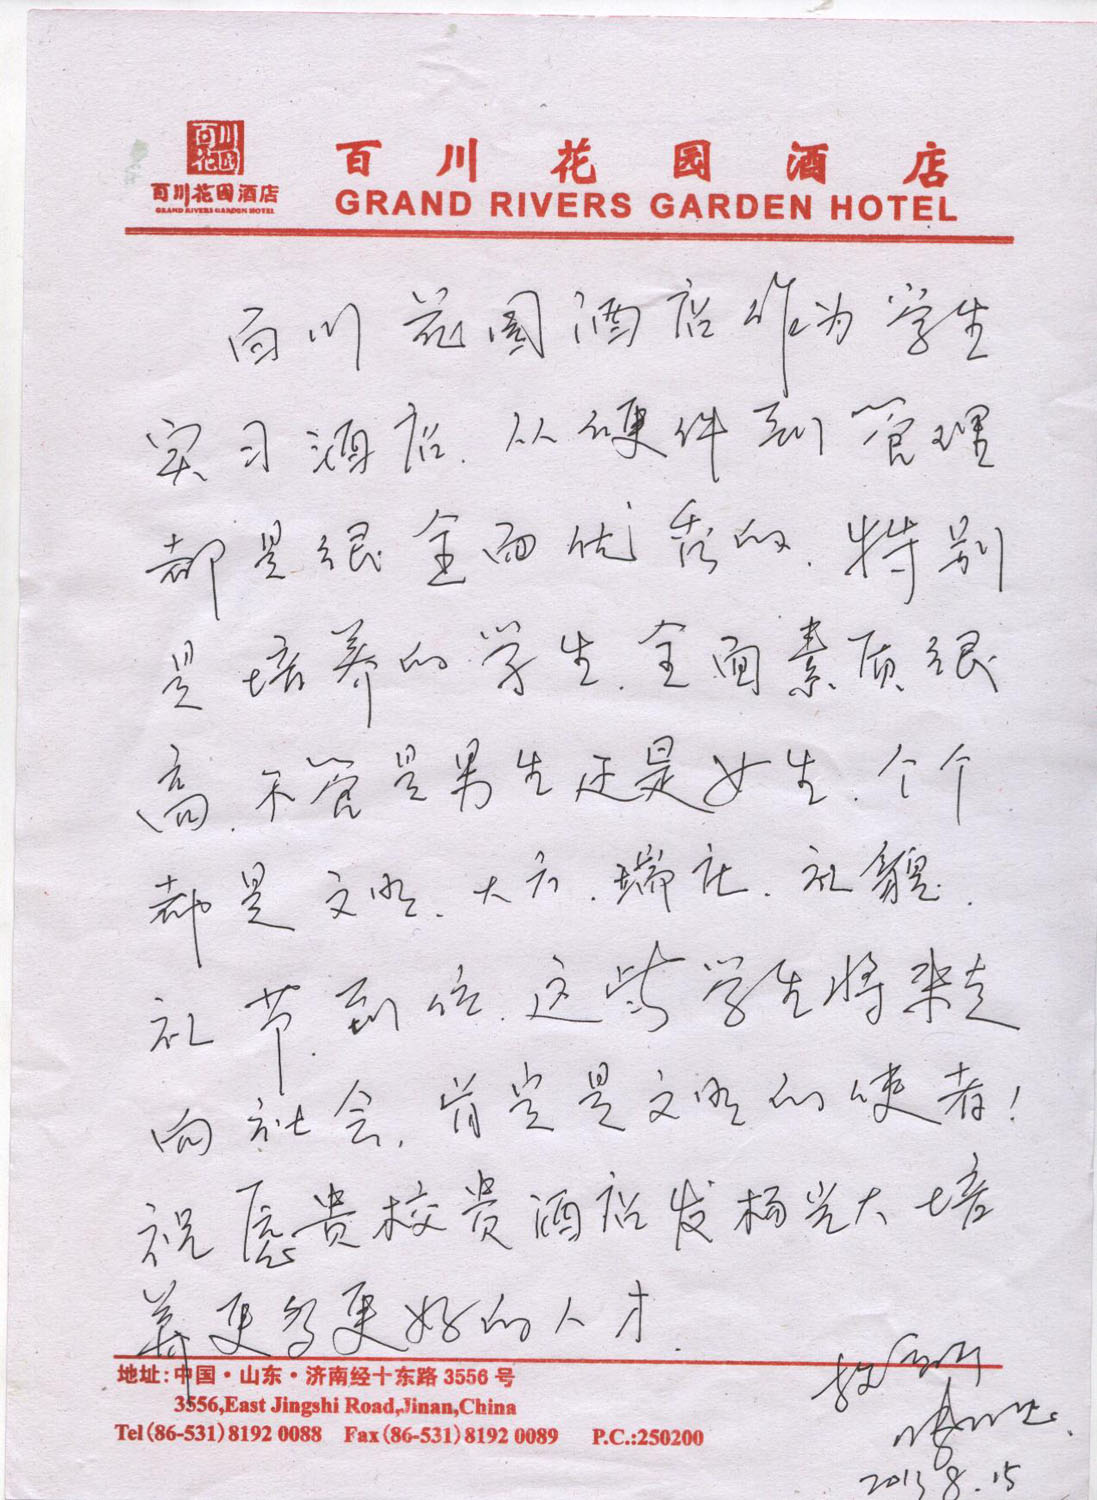 百川花园
百川花园酒店
GRAND RIVERS GARDEN HOTEL
百川花园酒店
GRAND RIVERS GARDEN HOTEL
百川花园酒店作为学生
实习酒店.从硬件到管理
都是很全面优秀的.特别
是培养的学生.全面素质很
高.不管是男生还是女生.个个
都是文明.大方.端庄.礼貌.
礼节.到位.这些学生将来走
向社会.肯定是文明的使者!
祝愿贵校贵酒店发扬光大培
养更多更好的人才.
地址:中国·山东·济南经十东路3556号
3556,East Jingshi Road,Jinan,China
Tel(86-531)8192 0088 Fax(86-531)8192 0089 P.C.:250200
2013.8.15